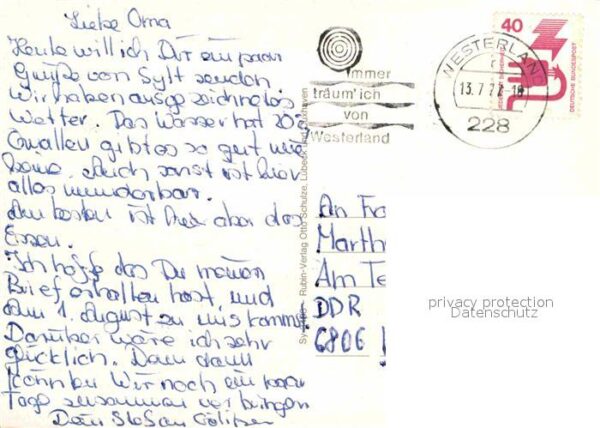 Liebe Oma
Heute will ich Dir ein paar
Grüße von Sylt senden
Wir haben ausgezeichnetes
Wetter. Das Wasser hat 20°
Quallen gibt es so gut wie
keine. Auch sonst ist hier
alles wunderbar.
Am besten ist hier aber das
Essen.
Ich hoffe das Du meinen
Brief erhalten hast, und
am 1. August zu uns kommst
Darüber wäre ich sehr
glücklich. Dann
könnten Wir noch ein paar
Tage zusammen verbringen
Dein Stefan
immer
träum' ich
von
Westerland
WESTERLAND
13.7.77
228
40
DEUTSCHE BUNDESPOST
Rubin-Verlag Otto Schulze, Lübeck und Cuxhaven
An Fra
Marth
Am Te
DDR
6806
privacy protection
Datenschutz